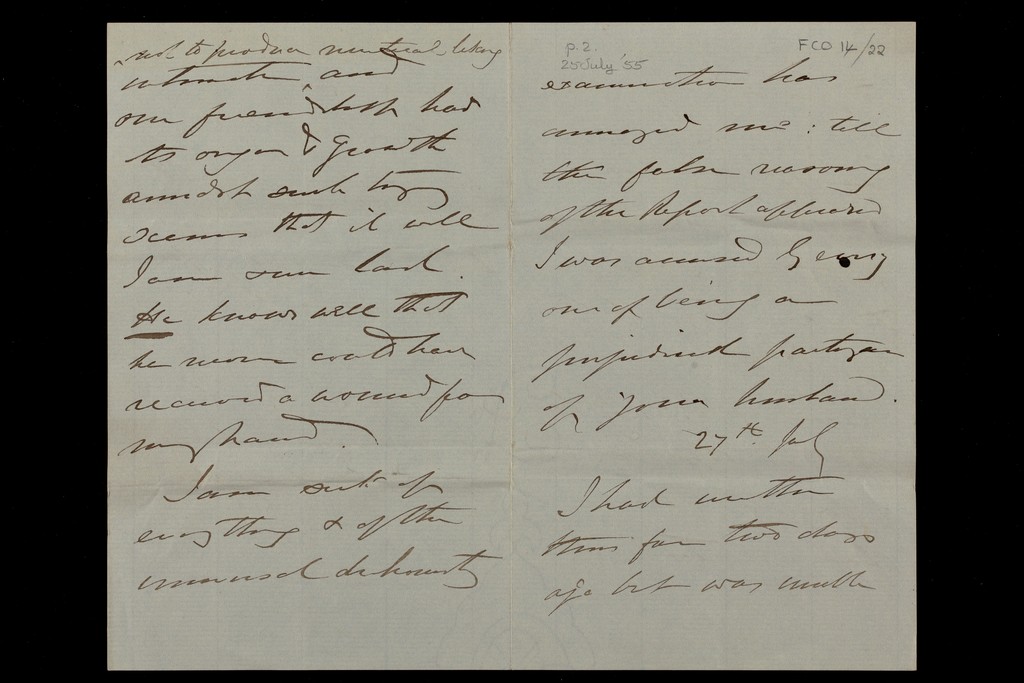 not to produce mutual liking
intimate and
our friendship had
its origin & growth
amidst such trying
scenes that it will
I am sure last.
He knows well that
he never could have
received a wound from
my hand.
I am sick of
everything & of the
universal dishonesty
p. 2.
25 July '55
FCO 14/22
examination has
annoyed me: till
the false reasoning
of the Report appeared
I was accused by every
one of being a
prejudiced partizan
of your husband.
27th July
I had written
thus far two days
ago but was unable